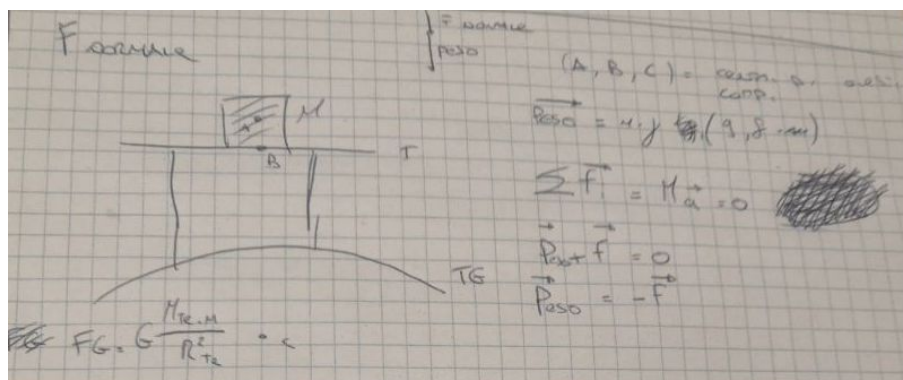 F normale
F normale
peso
(A, B, C) =
M
B
T
TE
Peso = m · g (9,8 · m)
∑ f_i = M a = 0
Peso + f = 0
Peso = - f
FG = G M_Te · M / R²_Te · c